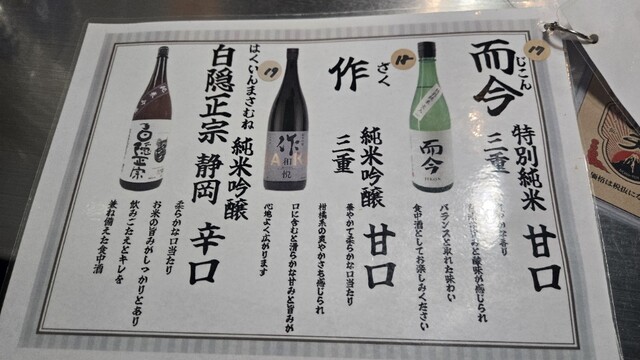 而今
じこん
17
特別純米
三重
甘口
やかな香り
味が感じられ
バランスと取れた味わい
食中酒としてお楽しみください
而今
作
さく
18
純米吟醸
三重
甘口
華やかで柔らかな口当たり
柑橘系の爽やかさも感じられ
口に含むと滑らかな甘みと旨みが
心地よく広がります
作
和悦
白隠正宗
はくいんまさむね
19
純米吟醸
静岡
辛口
柔らかな口当たり
お米の旨みがしっかりとあり
飲みごたえとキレを
兼ね備えた食中酒
白隠正宗
価格は税抜にな